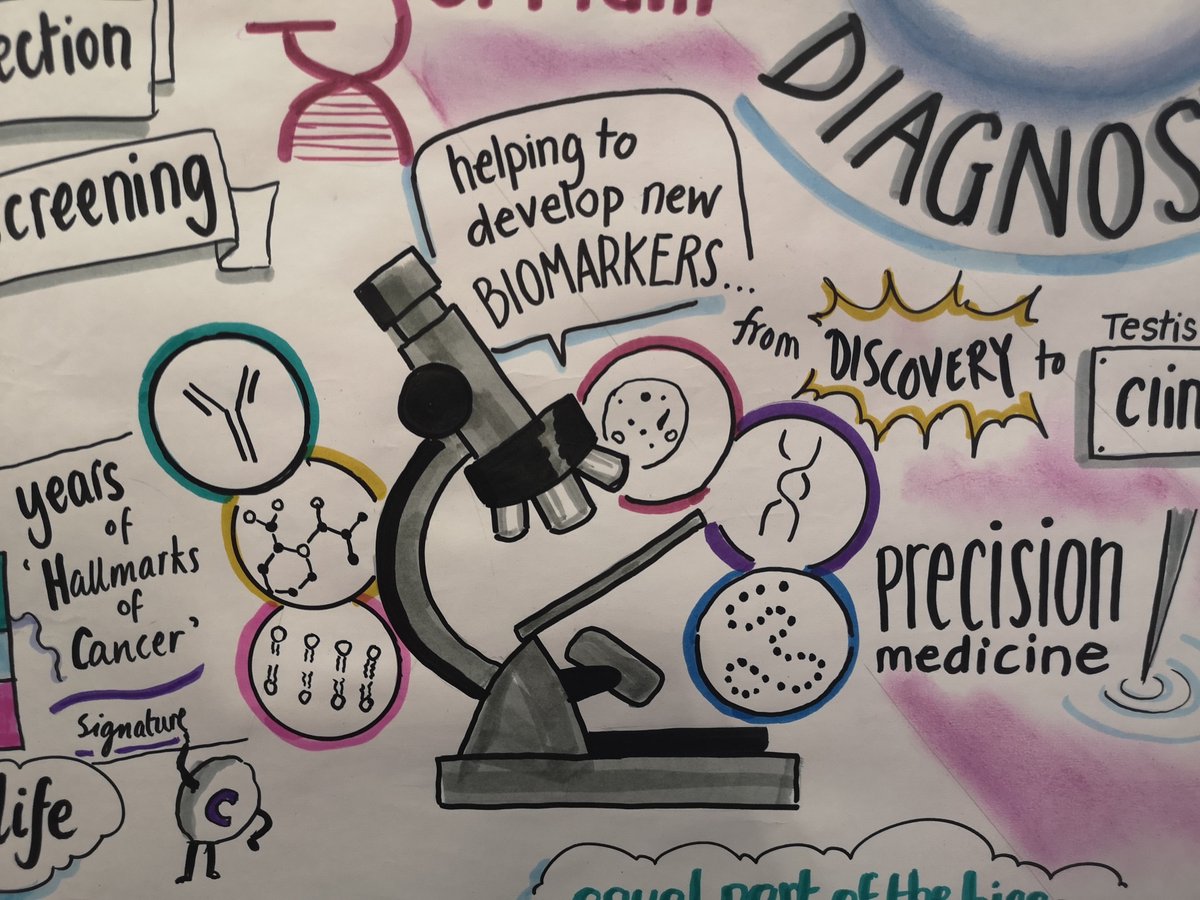 ection
creening
helping to
develop new
BIOMARKERS...
from DISCOVERY to
DIAGNOS
Testis
clin
precision
medicine
years
of
'Hallmarks
of
Cancer'
signature
life
C
equal part of the